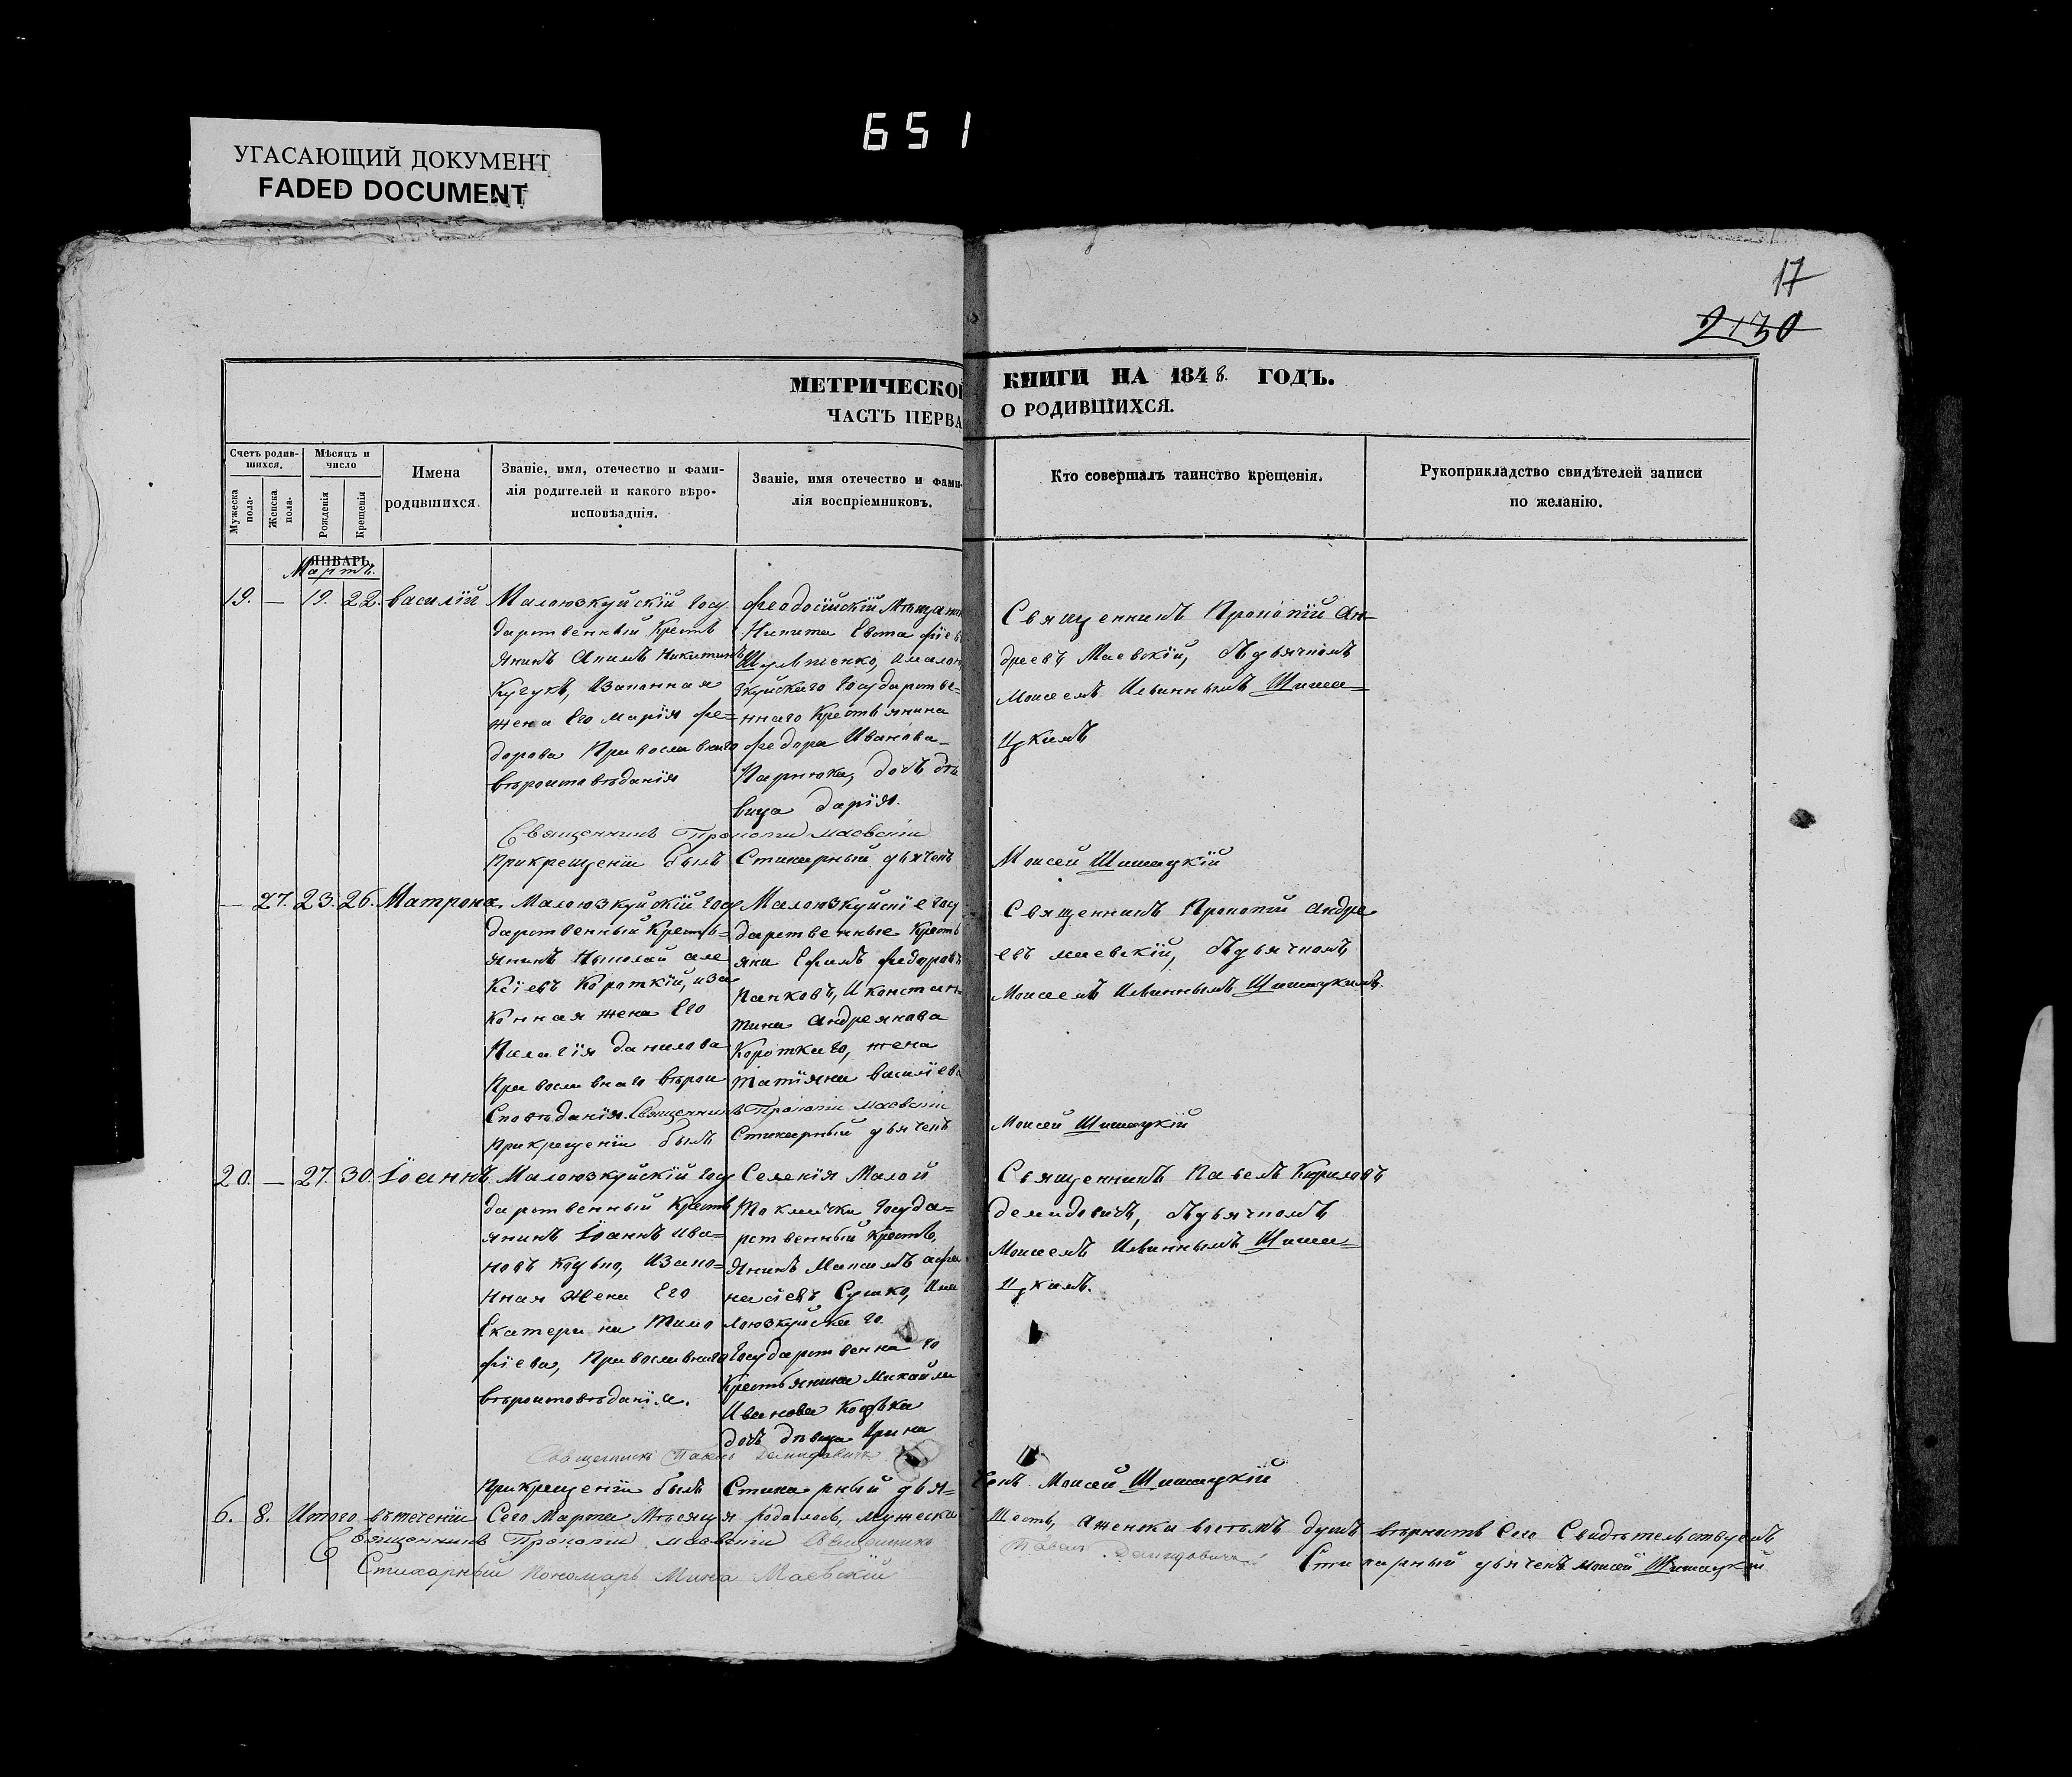 651
УГАСАЮЩИЙ ДОКУМЕНТ
FADED DOCUMENT
17
2130
МЕТРИЧЕСКОЙ КНИГИ НА 1848. ГОДЪ.
ЧАСТЬ ПЕРВА О РОДИВШИХСЯ.
Счетъ родив-
шихся.
Мужеска пола.
Женска пола.
Мѣсяцъ и
число
Рожденія
Крещенія
Имена
родившихся.
Званіе, имя, отечество и фами-
лія родителей и какого вѣро-
исповѣданія.
Званіе, имя отечество и фами-
лія воспріемниковъ.
Кто совершалъ таинство крещенія.
Рукоприкладство свидѣтелей записи
по желанію.
ЯНВАРЬ.
Мартъ.
19. — 19. 22. Василій
Малоюзкуйскій Госу
дарственный Кресть
янинъ Акимъ Никитинъ
Кугукъ, Изаконная
жена Его Марія Фе=
дорова Православнаго
вѣроисповѣданія
Феодосійскій Мѣщани
Никита Евстафіев
Шульженко, Имало
зкуйскаго Государстве=
ннаго Крестьянина
Федора Иванова
Парнюка, дочь дѣ
вица Дарія.
Священникъ Прокопій Ан-
дреевъ Маевскій, съдьячкомъ
Моисеемъ Ильинымъ Шиша=
цкимъ
Священникъ Прокопій Маевскій
Прикрещеніи былъ Стихарный дьячекъ Моисей Шишацкій
— 27. 23. 26. Матрона,
Малоюзкуйскій Госу
дарственный Кресть=
янинъ Николай Але
ксіевъ Короткій, иза
конная жена Его
Пелагія Данилова
Православнаго вѣрои
сповѣданія
Малоюзкуйскіе Госу
дарственные Кресть
яни Ефимъ Федоровъ
Панковъ, И констан
тина Андреянова
Короткаго, жена
Татіяна Василіева
Священникъ Прокопій Андре
евъ Маевскій, съдьячкомъ
Моисеемъ Ильинымъ Шишацкимъ.
Священникъ Прокопій Маевскій
Прикрещеніи былъ Стихарный дьячекъ Моисей Шишацкій
20. — 27. 30. Іоаннъ
Малоюзкуйскій Госу
дарственный Кресть
янинъ Іоаннъ Ива=
новъ Коцько, Изако=
нная Жена Его
Екатерина Тимо
фіева, Православнаго
вѣроисповѣданія.
Селенія Малой
Токмачки Госуда=
рственный Кресть,
янинъ Максимъ Афа
насіевъ Сушко, Има
лоюзкуйскаго
Государственнаго
Крестьянина Михайла
Иванова Коцька
дочь дѣвица Ирина
Священникъ Павелъ Кириловъ
Демидовичъ, съдьячкомъ
Моисеемъ Ильинымъ Шиша=
цкимъ.
Священникъ Павелъ Демидовичъ
Прикрещеніи былъ Стихарный дья=чекъ Моисей Шишацкій
6. 8. Итого втеченіи Сего Марта Мѣсяця родилось, мужеска Шесть, аженска восемъ душъ вѣрность Сего Свидѣтельствуемъ
Священникъ Прокопій Маевскій Священникъ Павелъ Демидовичъ Стихарный дьячекъ Моисей Шишацкій
Стихарный Пономарь Мина Маевскій